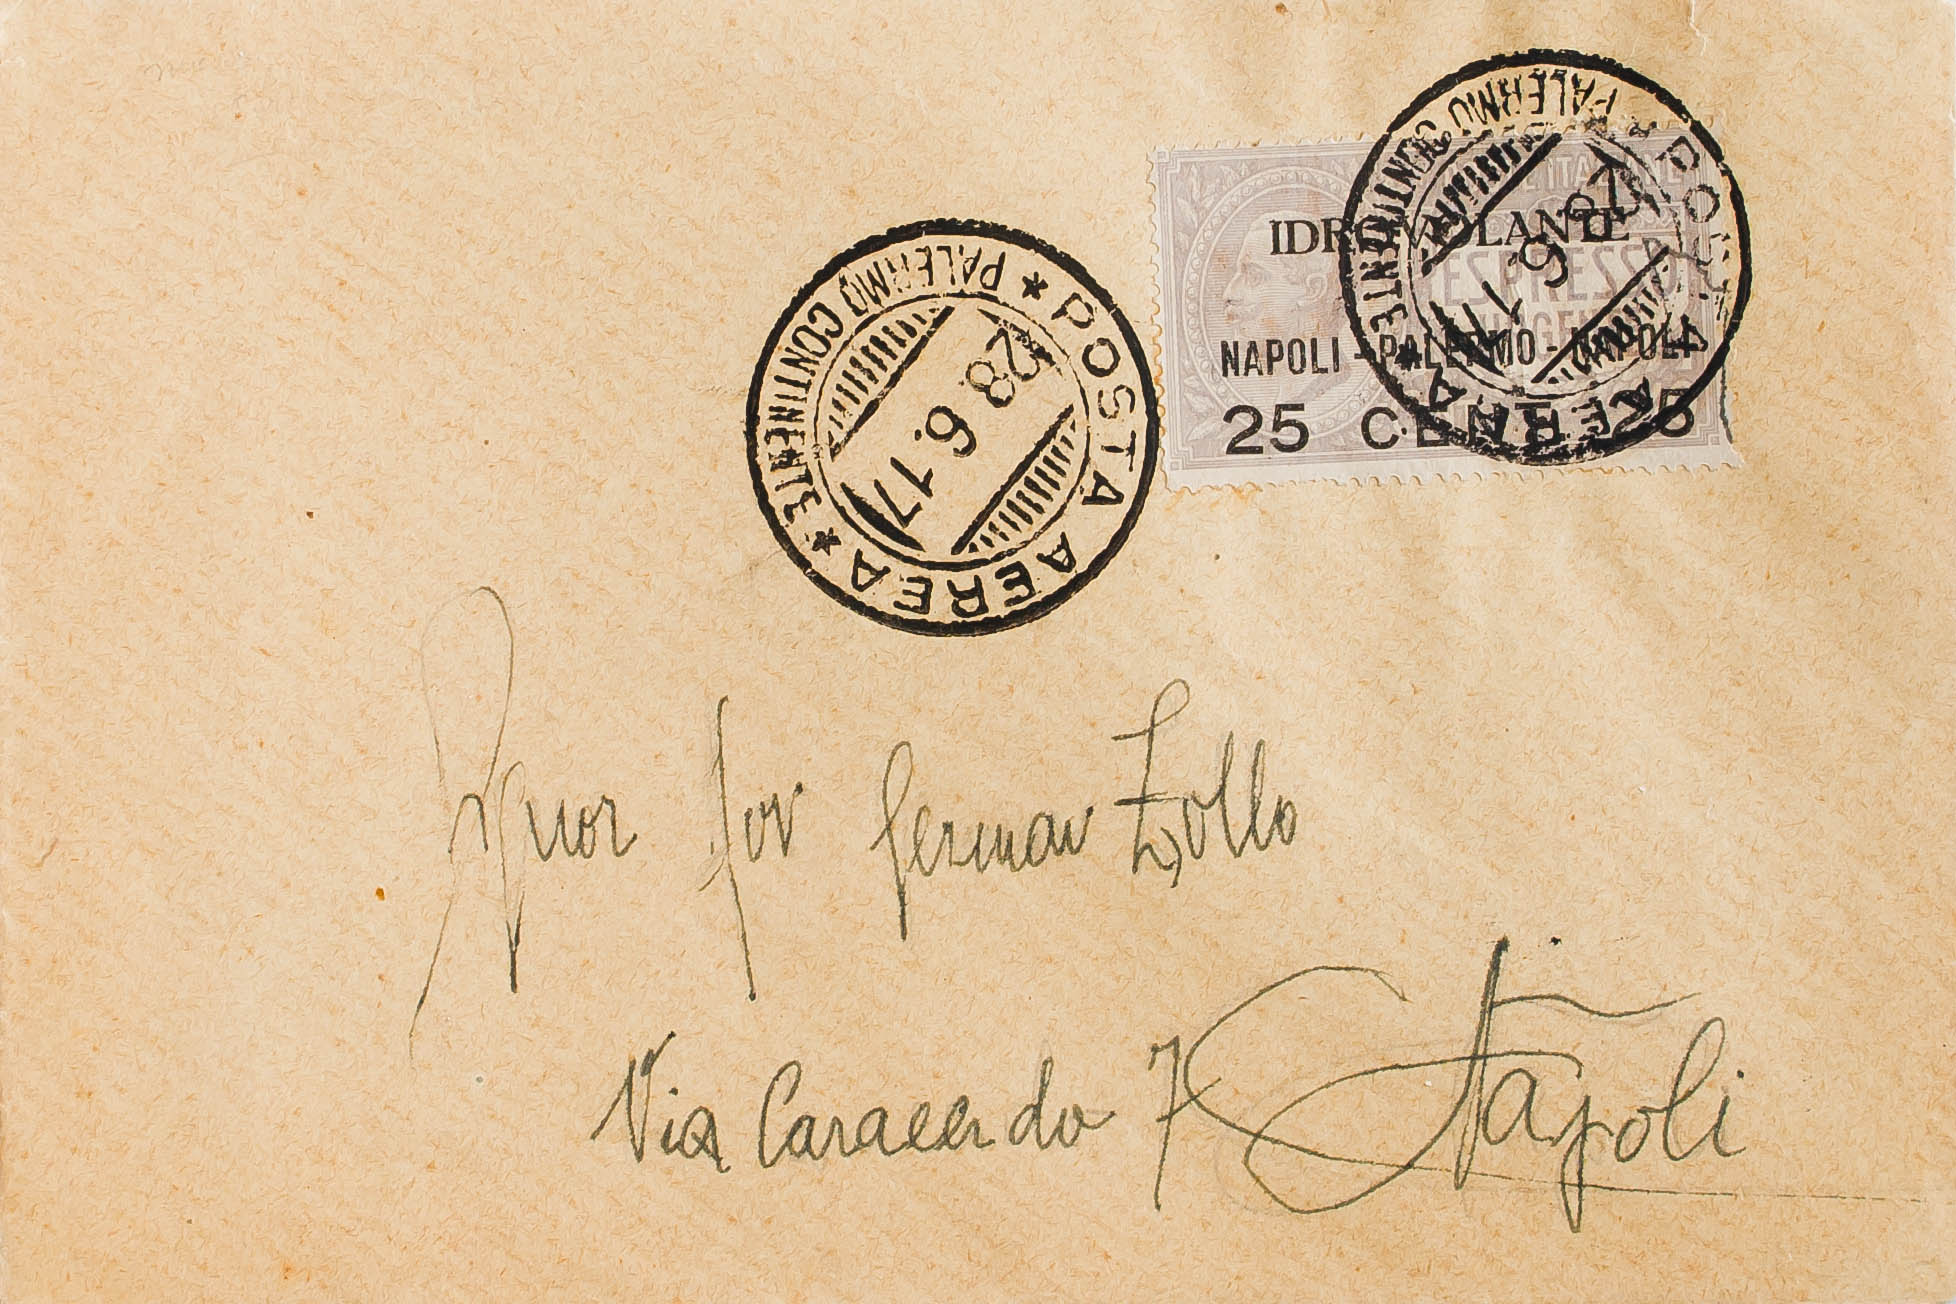 PALERMO CONTINENTE
POSTA AEREA
28 6.17
IDROVOLANTE
ESPRESSO
NAPOLI - PALERMO - NAPOLI
25 CENT. 25
PALERMO CONTINENTE
POSTA AEREA
28 6 17
Zollo
Via Caracciolo 7 Napoli